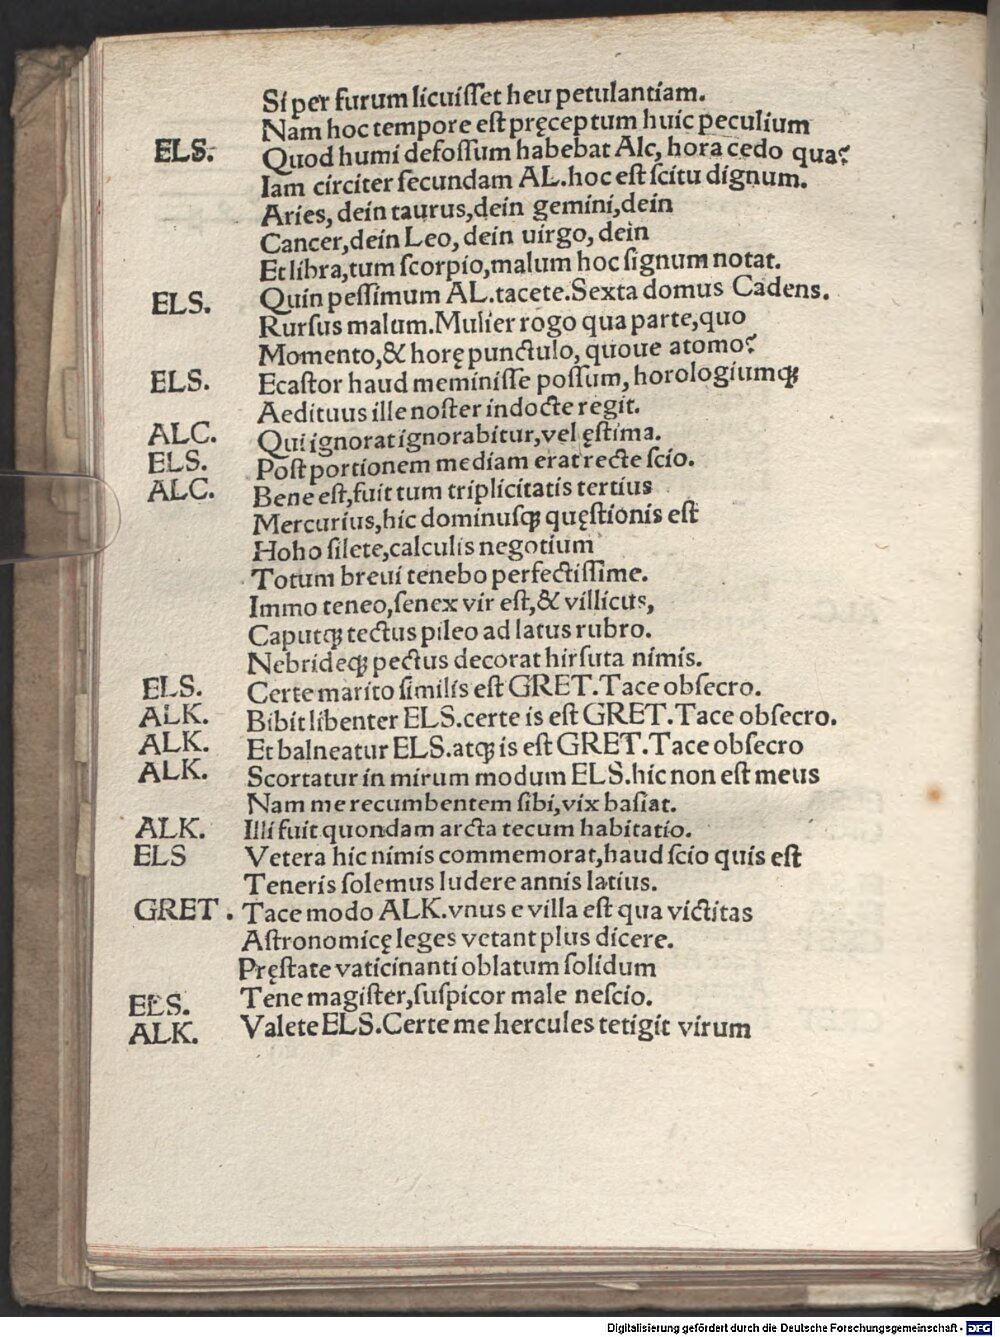 Si per furum licuiſſet heu petulantiam.
Nam hoc tempore eſt pręceptum huic peculium
ELS. Quod humi defoſſum habebat Alc, hora cedo qua?
Iam circiter ſecundam AL.hoc eſt ſcitu dignum.
Aries, dein taurus,dein gemini,dein
Cancer,dein Leo, dein uirgo, dein
Et libra,tum ſcorpio,malum hoc ſignum notat.
ELS. Quin peſſimum AL.tacete.Sexta domus Cadens.
Rurſus malum.Mulier rogo qua parte,quo
Momento,& horę punctulo, quoue atomo?
ELS. Ecaſtor haud meminiſſe poſſum, horologiumqꝫ
Aedituus ille noſter indocte regit.
ALC. Qui ignorat ignorabitur,vel ęſtima.
ELS. Poſt portionem mediam erat recte ſcio.
ALC. Bene eſt,fuit tum triplicitatis tertius
Mercurius,hic dominuſqꝫ quęſtionis eſt
Hoho ſilete,calculis negotium
Totum breui tenebo perfectiſſime.
Immo teneo,ſenex vir eſt,& villicus,
Caputqꝫ tectus pileo ad latus rubro.
Nebrideqꝫ pectus decorat hirſuta nimis.
ELS. Certe marito ſimilis eſt GRET.Tace obſecro.
ALK. Bibit libenter ELS.certe is eſt GRET.Tace obſecro.
ALK. Et balneatur ELS.atqꝫ is eſt GRET.Tace obſecro
ALK. Scortatur in mirum modum ELS.hic non eſt meus
Nam me recumbentem ſibi,vix baſiat.
ALK. Illi fuit quondam arcta tecum habitatio.
ELS Vetera hic nimis commemorat,haud ſcio quis eſt
Teneris ſolemus ludere annis latius.
GRET. Tace modo ALK.vnus e villa eſt qua victitas
Aſtronomicę leges vetant plus dicere.
Pręſtate vaticinanti oblatum ſolidum
ELS. Tene magiſter,ſuſpicor male neſcio.
ALK. Valete ELS.Certe me hercules tetigit virum
Digitalisierung gefördert durch die Deutsche Forschungsgemeinschaft - DFG